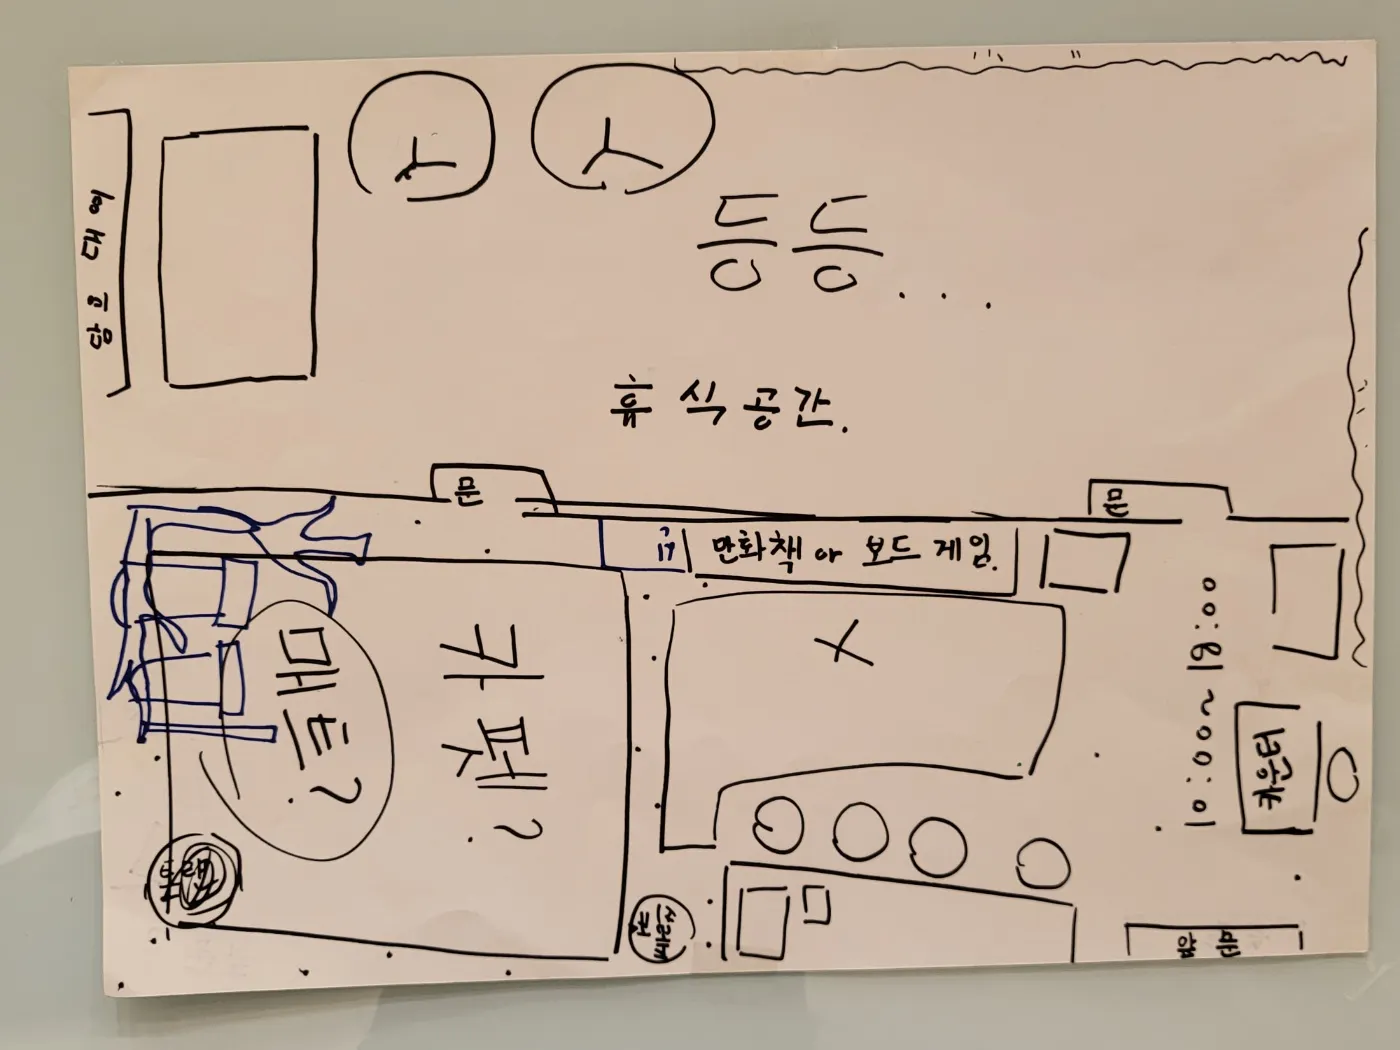 당구대 여
등등...
휴식공간.
문
문
만화책 or 보드 게임.
매트?
카펫?
10:00~18:00
카운터
쓰레기
앞문